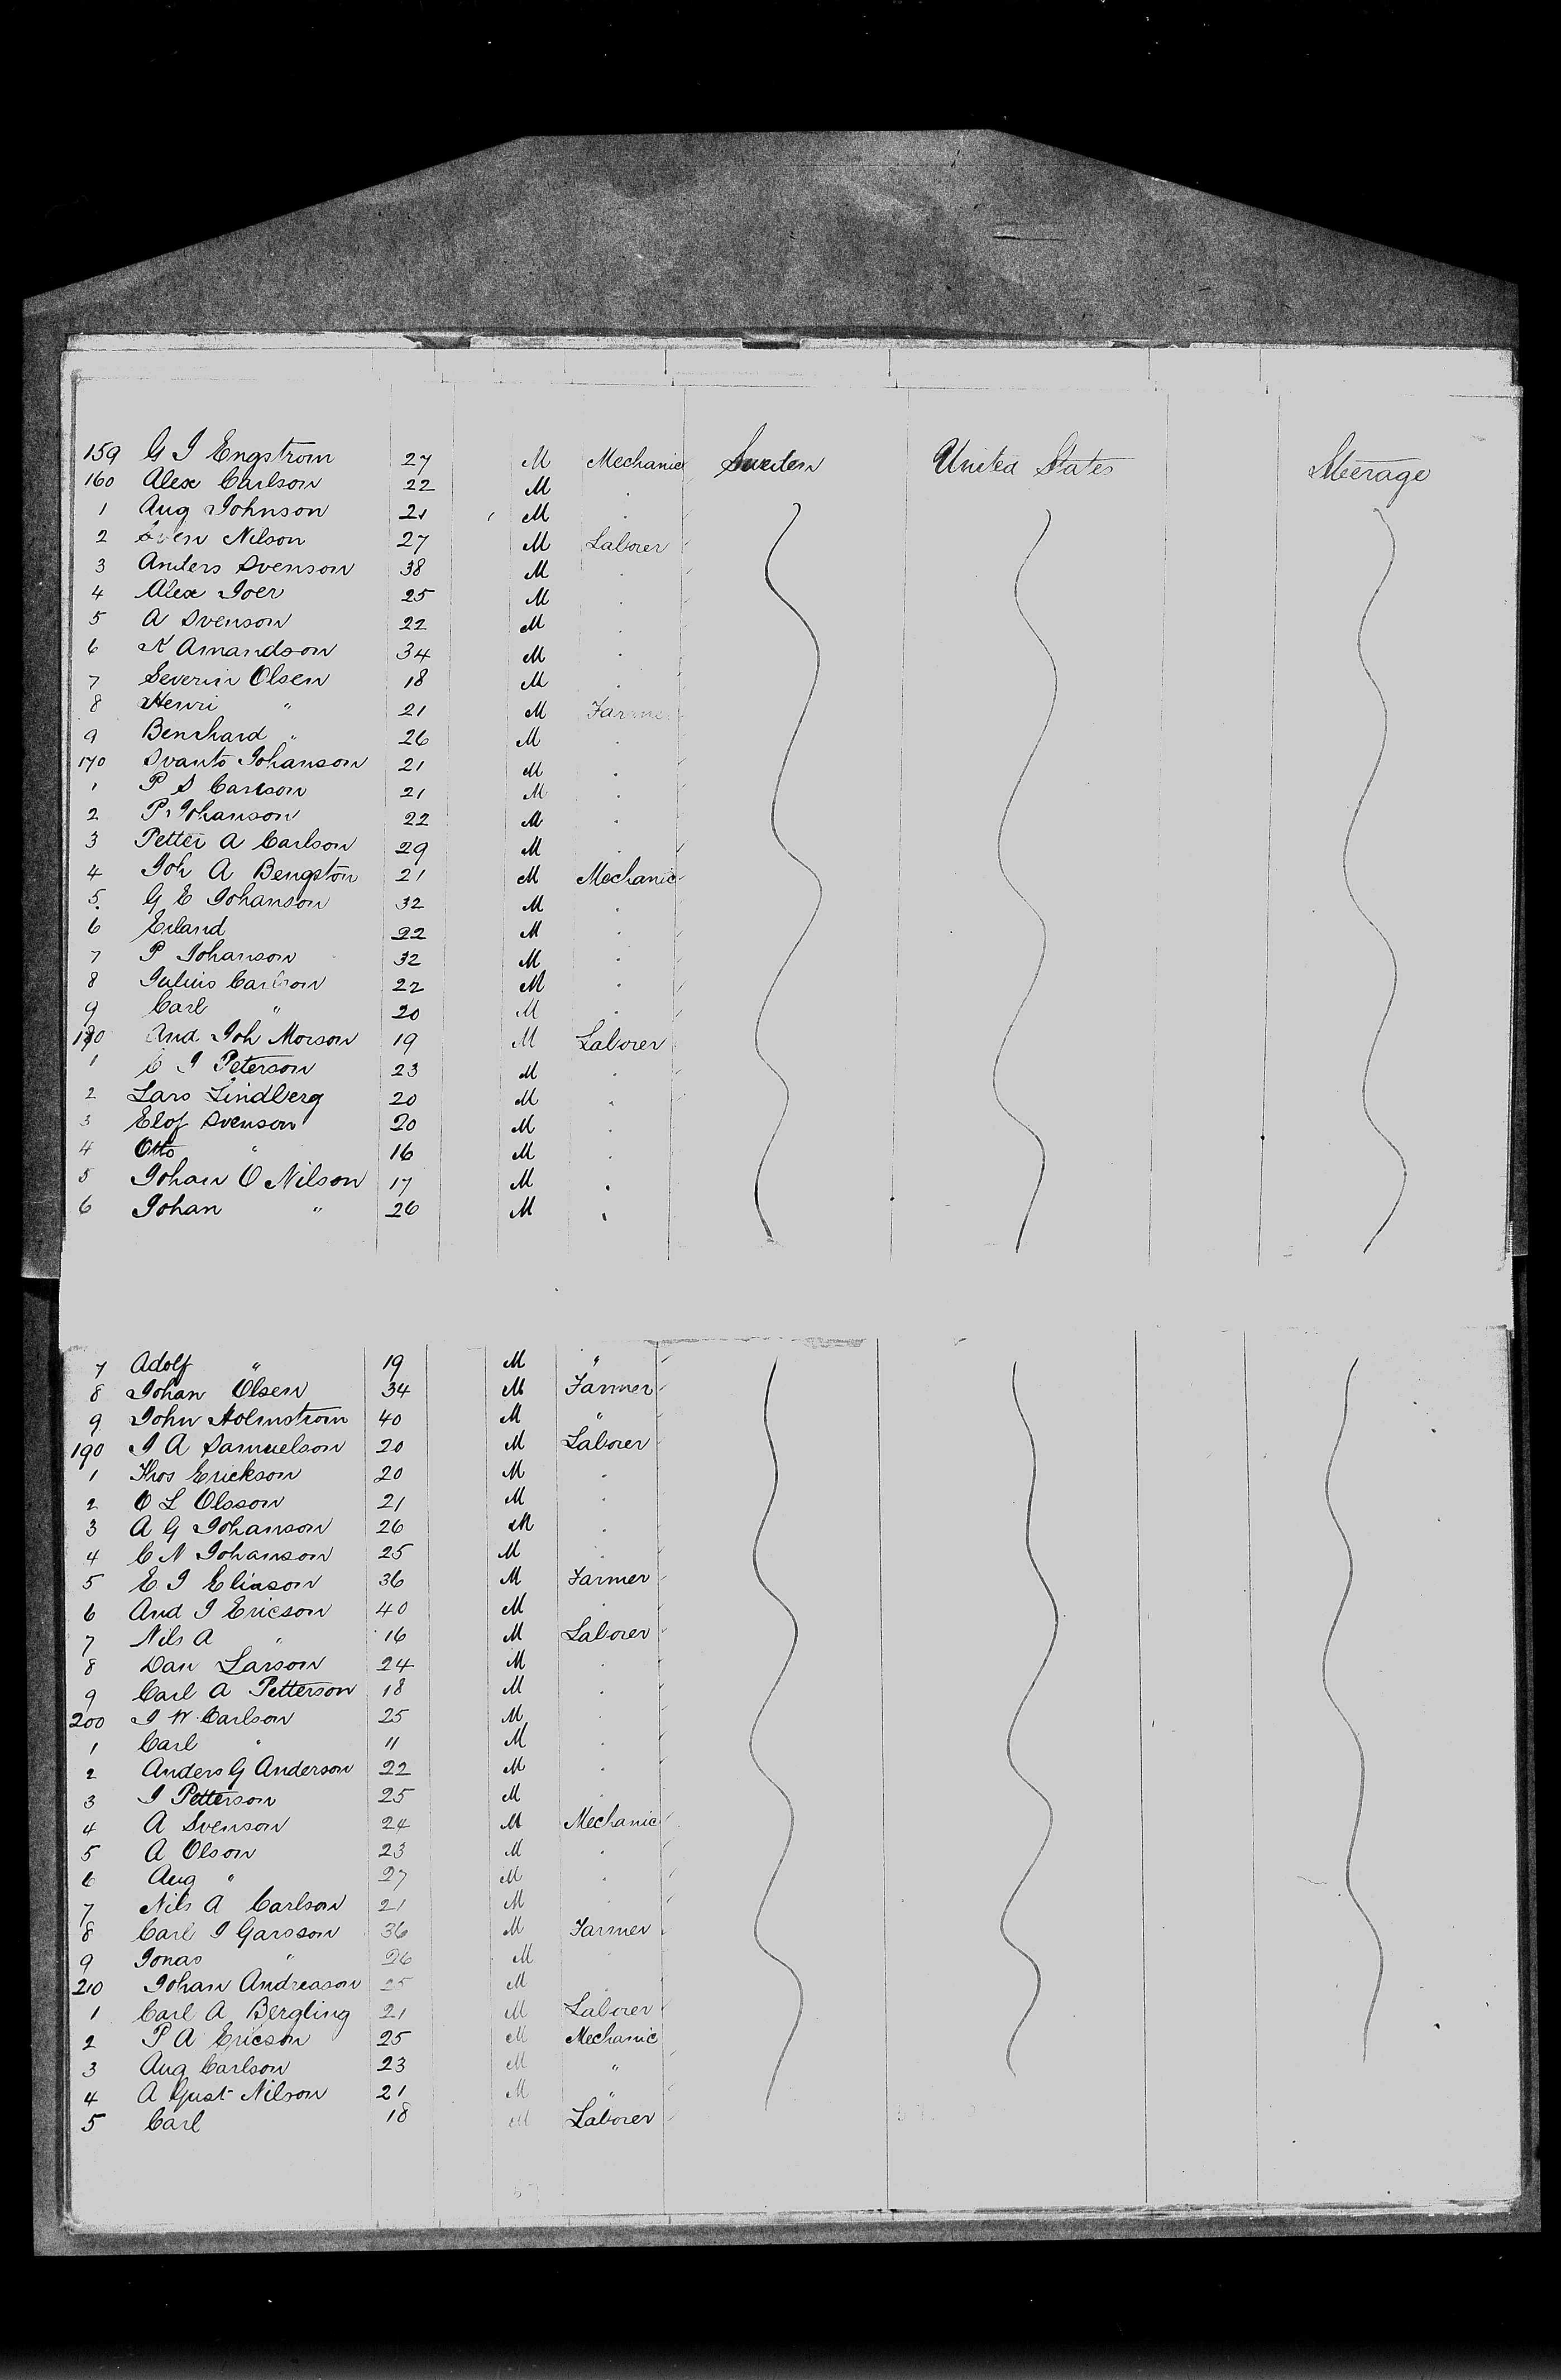 159 G J Engstrom 27 M Mechanic Sweden United States Steerage
160 Alex Carlson 22 M "
1 Aug Johnson 21 M "
2 Sven Nilson 27 M Laborer
3 Anders Svenson 38 M "
4 Alex Joer 25 M "
5 A Svenson 22 M "
6 K Amandson 34 M "
7 Severin Olsen 18 M "
8 Henri " 21 M Farmer
9 Benrhard " 26 M "
170 Svante Johanson 21 M "
1 P S Carlson 21 M "
2 P. Johanson 22 M "
3 Petter A Carlson 29 M "
4 Joh A Bengston 21 M Mechanic
5. G E Johanson 32 M "
6 Erland 22 M "
7 P Johanson 32 M "
8 Julius Carlson 22 M "
9 Carl " 20 M "
180 And Joh Morson 19 M Laborer
1 C J Peterson 23 M "
2 Lars Lindberg 20 M "
3 Elof Svenson 20 M "
4 Otto " 16 M "
5 Johan O Nilson 17 M "
6 Johan " 26 M "
7 Adolf " 19 M "
8 Johan Olsen 34 M Farmer
9 John Holmstrom 40 M "
190 J A Samuelson 20 M Laborer
1 Thos Erickson 20 M "
2 O L Olsson 21 M "
3 A G Johanson 26 M "
4 C N Johanson 25 M "
5 E J Eliason 36 M Farmer
6 And J Ericson 40 M "
7 Nils A " 16 M Laborer
8 Dan Larson 24 M "
9 Carl A Petterson 18 M "
200 J W Carlson 25 M "
1 Carl " 11 M "
2 Anders G Anderson 22 M "
3 J Petterson 25 M "
4 A Svenson 24 M Mechanic
5 A Olson 23 M "
6 Aug " 27 M "
7 Nils A Carlson 21 M "
8 Carl J Garsson 36 M Farmer
9 Jonas " 26 M "
210 Johan Andreason 25 M "
1 Carl A Bergling 21 M Laborer
2 P A Ericson 25 M Mechanic
3 Aug Carlson 23 M "
4 A Gust Nilson 21 M "
5 Carl 18 M Laborer